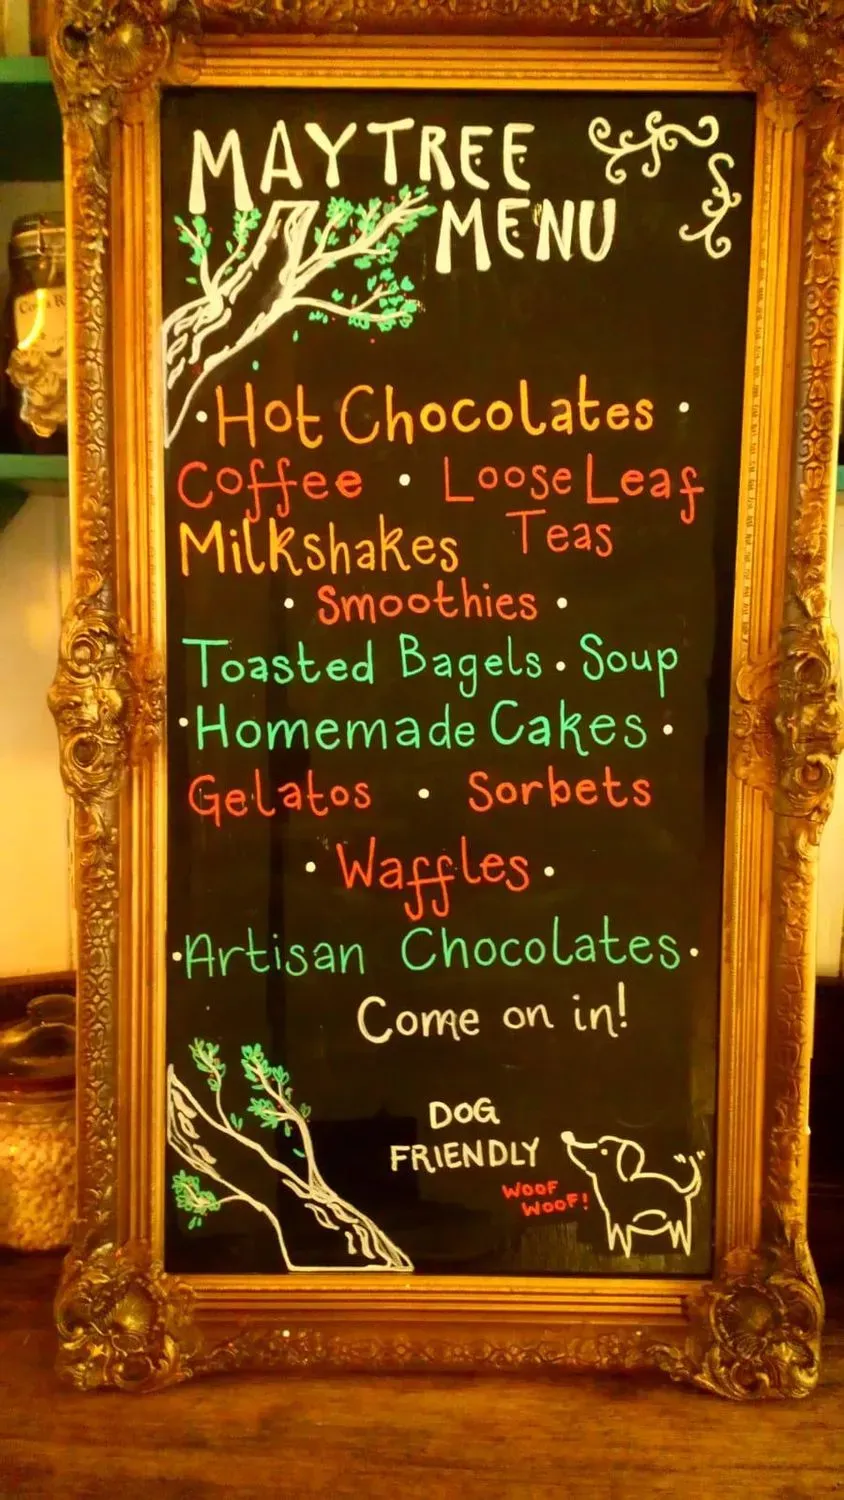 MAYTREE
MENU
• Hot Chocolates •
Coffee • Loose Leaf
Milkshakes Teas
• Smoothies •
Toasted Bagels • Soup
• Homemade Cakes •
Gelatos • Sorbets
• Waffles •
• Artisan Chocolates •
Come on in!
DOG
FRIENDLY
WOOF
WOOF!